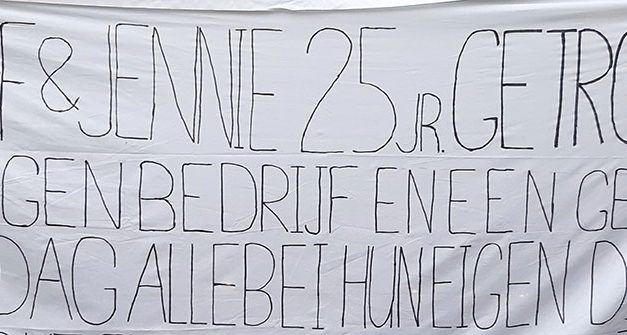 F & JENNIE 25 JR. GETRO
GEN BEDRIJF EN EEN GE
DAG ALLEBEI HUN EIGEN D